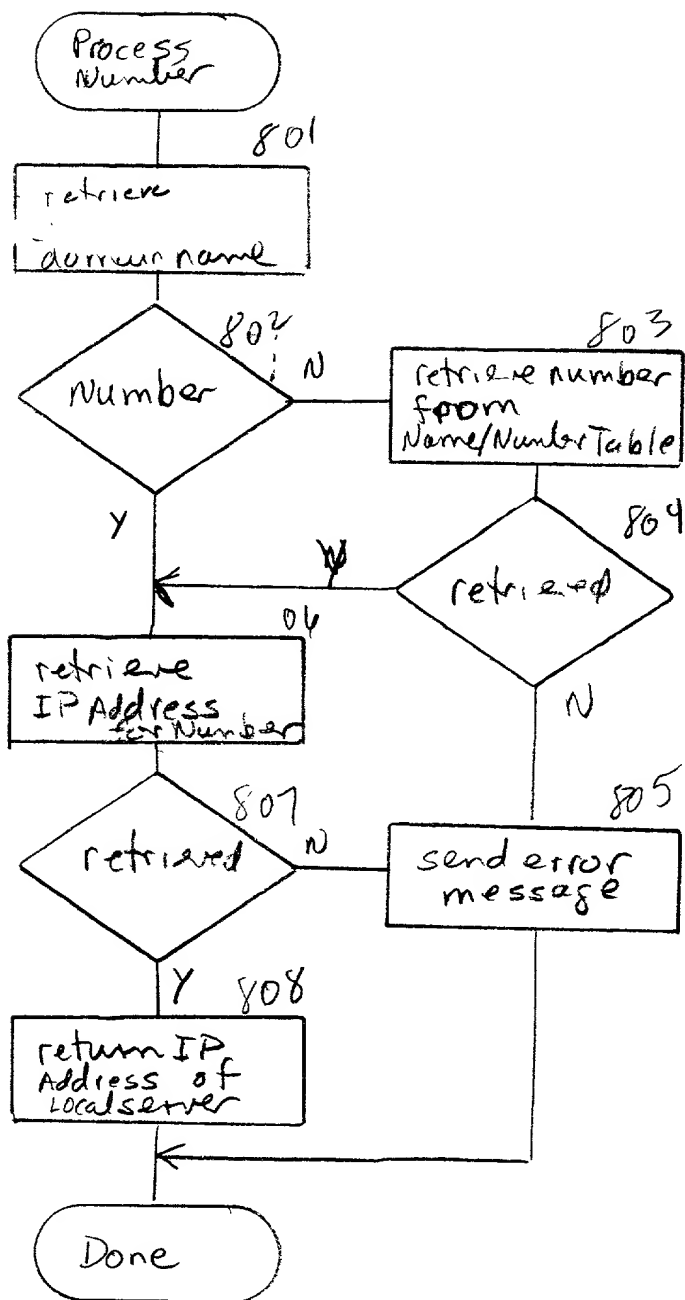 Process
Number
801
retrieve
name
802
Number
N
Y
803
retrieve number
from
Name/Number Table
804
retrieved
Y
N
06
retrieve
IP Address
for Number
807
retrieved
N
Y
805
send error
message
808
return IP
Address of
Local server
Done